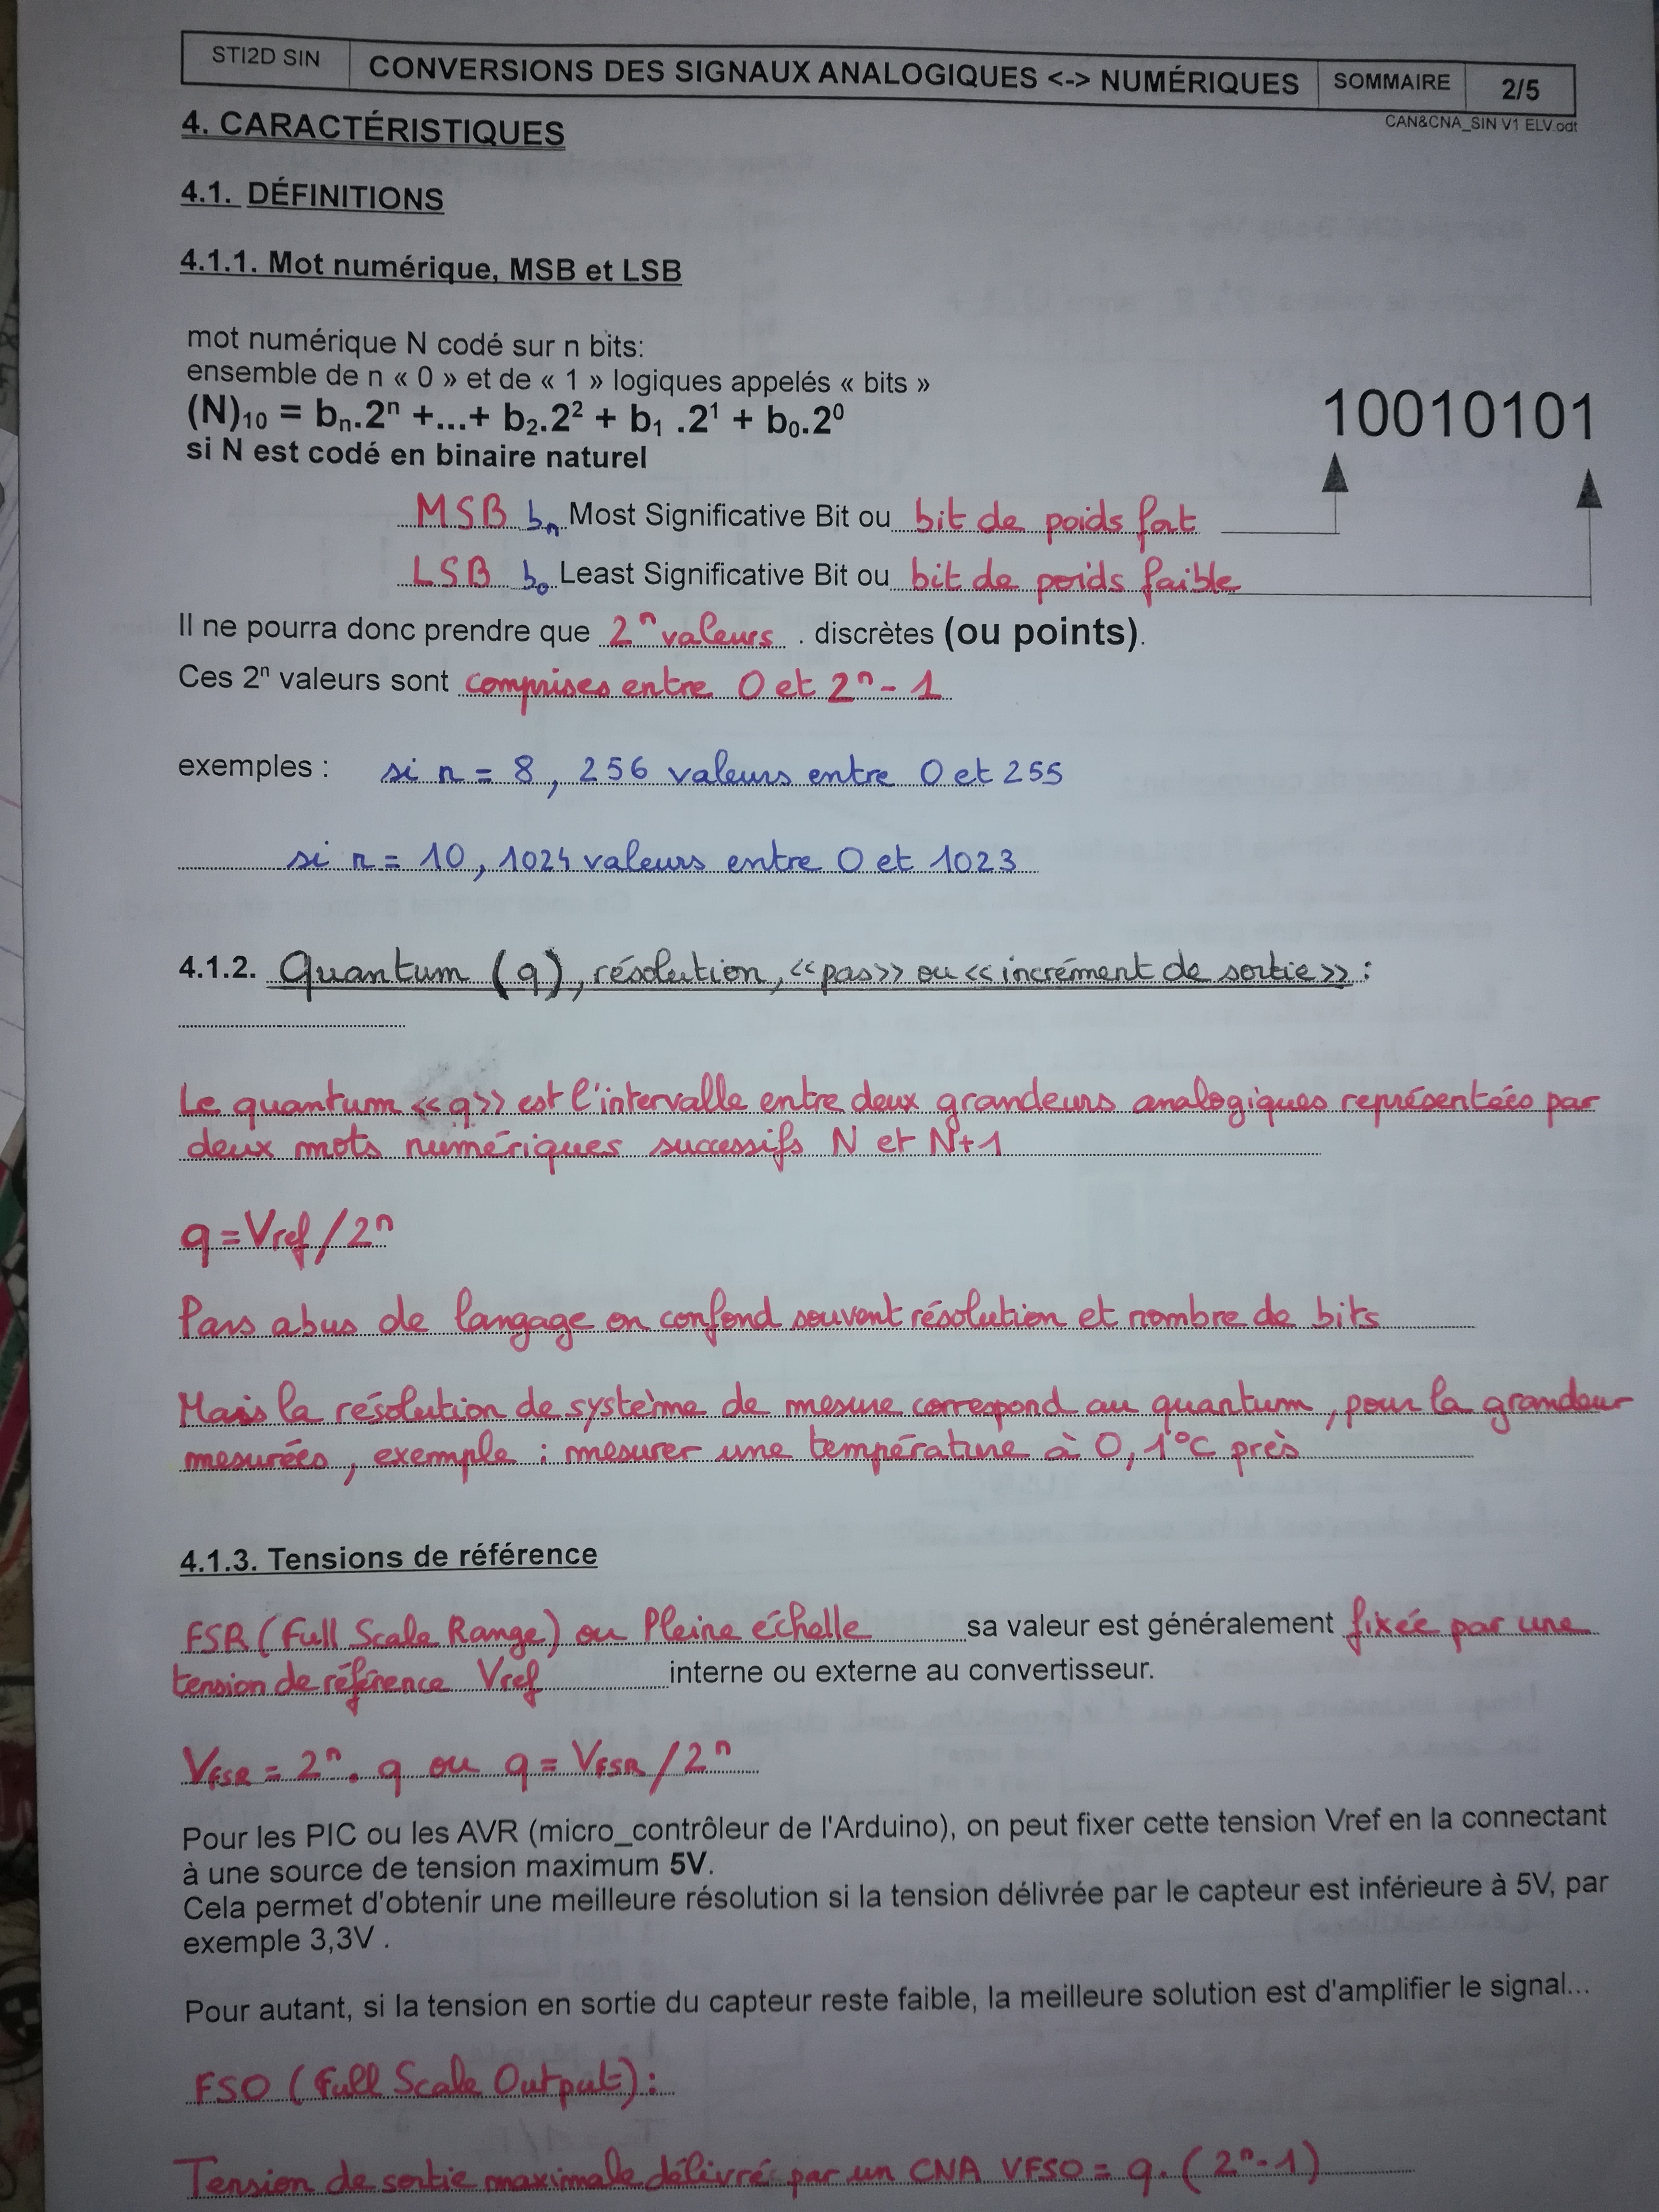 STI2D SIN CONVERSIONS DES SIGNAUX ANALOGIQUES <-> NUMÉRIQUES SOMMAIRE 2/5
CAN&CNA_SIN V1 ELV.odt
4. CARACTÉRISTIQUES
4.1. DÉFINITIONS
4.1.1. Mot numérique, MSB et LSB
mot numérique N codé sur n bits:
ensemble de n « 0 » et de « 1 » logiques appelés « bits »
(N)₁₀ = bₙ.2ⁿ +...+ b₂.2² + b₁ .2¹ + b₀.2⁰
10010101
si N est codé en binaire naturel
MSB bₙ Most Significative Bit ou bit de poids fort
LSB b₀ Least Significative Bit ou bit de poids faible
Il ne pourra donc prendre que 2ⁿ valeurs . discrètes (ou points).
Ces 2ⁿ valeurs sont comprises entre 0 et 2ⁿ - 1
exemples : si n = 8, 256 valeurs entre 0 et 255
si n = 10, 1024 valeurs entre 0 et 1023
4.1.2. Quantum (q), résolution, <<pas>> ou <<incrément de sortie>> :
Le quantum <<q>> est l'intervalle entre deux grandeurs analogiques représentées par
deux mots numériques successifs N et N+1
q = Vref / 2ⁿ
Pars abus de langage on confond souvent résolution et nombre de bits
Mais la résolution de système de mesure correspond au quantum, pour la grandeur
mesurées, exemple : mesurer une température à 0,1°C près
4.1.3. Tensions de référence
FSR (Full Scale Range) ou Pleine échelle sa valeur est généralement fixée par une
tension de référence Vref interne ou externe au convertisseur.
VFSR = 2ⁿ . q ou q = VFSR / 2ⁿ
Pour les PIC ou les AVR (micro_contrôleur de l'Arduino), on peut fixer cette tension Vref en la connectant
à une source de tension maximum 5V.
Cela permet d'obtenir une meilleure résolution si la tension délivrée par le capteur est inférieure à 5V, par
exemple 3,3V .
Pour autant, si la tension en sortie du capteur reste faible, la meilleure solution est d'amplifier le signal...
FSO (Full Scale Output) :
Tension de sortie maximale délivré par un CNA VFSO = q. (2ⁿ-1)